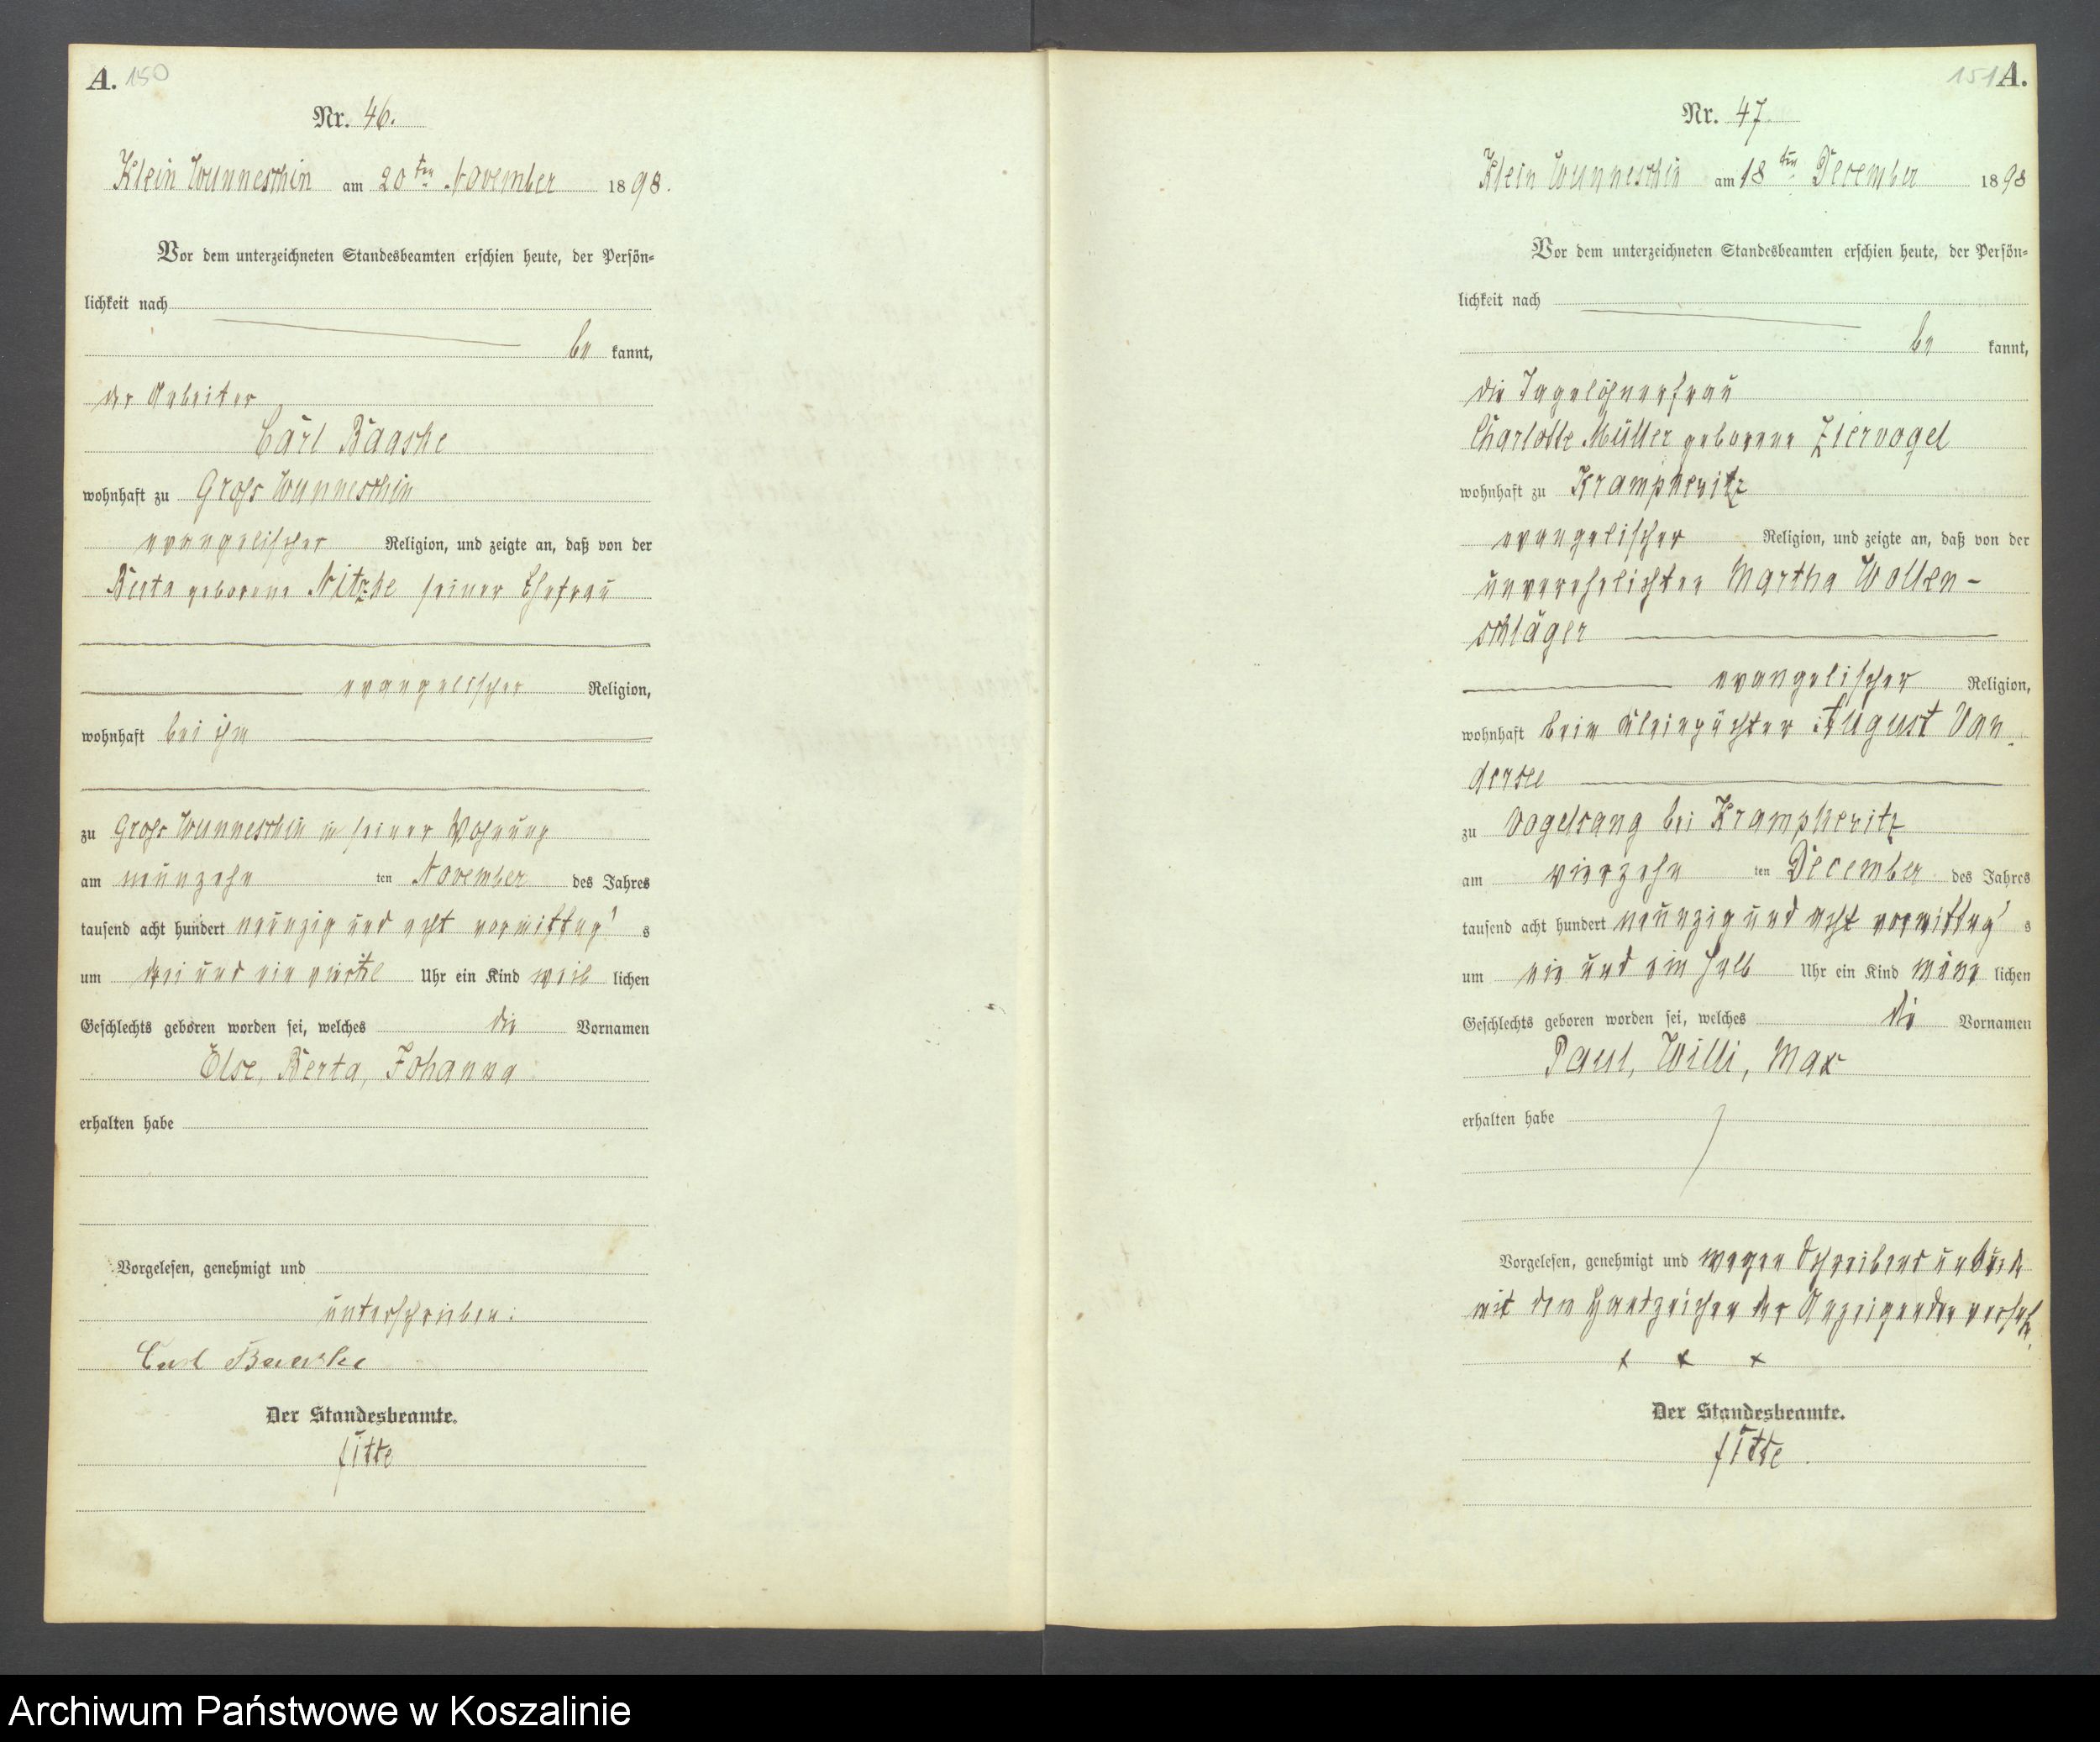 A. 150
Nr. 46.
Klein Wunneschin am 20ten November 1898.
Vor dem unterzeichneten Standesbeamten erschien heute, der Persön=
lichkeit nach
be kannt,
der Arbeiter
Carl Baaske
wohnhaft zu Gross Wunneschin
evangelischer Religion, und zeigte an, daß von der
Berta geborene Nitzke seiner Ehefrau
evangelischer Religion,
wohnhaft bei ihm
zu Gross Wunneschin in seiner Wohnung
am neunzehn ten November des Jahres
tausend acht hundert neunzig und acht vormittag's
um drei und ein viertel Uhr ein Kind weib lichen
Geschlechts geboren worden sei, welches die Vornamen
Else, Berta, Johanna
erhalten habe
Vorgelesen, genehmigt und
unterschrieben:
Carl Baaske
Der Standesbeamte.
151 A.
Nr. 47.
Klein Wunneschin am 18ten December 1898
Vor dem unterzeichneten Standesbeamten erschien heute, der Persön=
lichkeit nach
be kannt,
die Tagelöhnerfrau
Charlotte Müller geborene Ziervogel
wohnhaft zu Krampkevitz
evangelischer Religion, und zeigte an, daß von der
unverehelichten Martha Wollen-
schläger
evangelischer Religion,
wohnhaft beim Kleinpächter August Van
dersee
zu Vogelsang bei Krampkevitz
am vierzehn ten December des Jahres
tausend acht hundert neunzig und acht vormittag's
um ein und ein halb Uhr ein Kind männ lichen
Geschlechts geboren worden sei, welches die Vornamen
Paul, Willi, Max
erhalten habe
Vorgelesen, genehmigt und wegen Schreibens unkund.
mit dem Handzeichen der Anzeigenden versehn.
x x x
Der Standesbeamte.
Archiwum Państwowe w Koszalinie